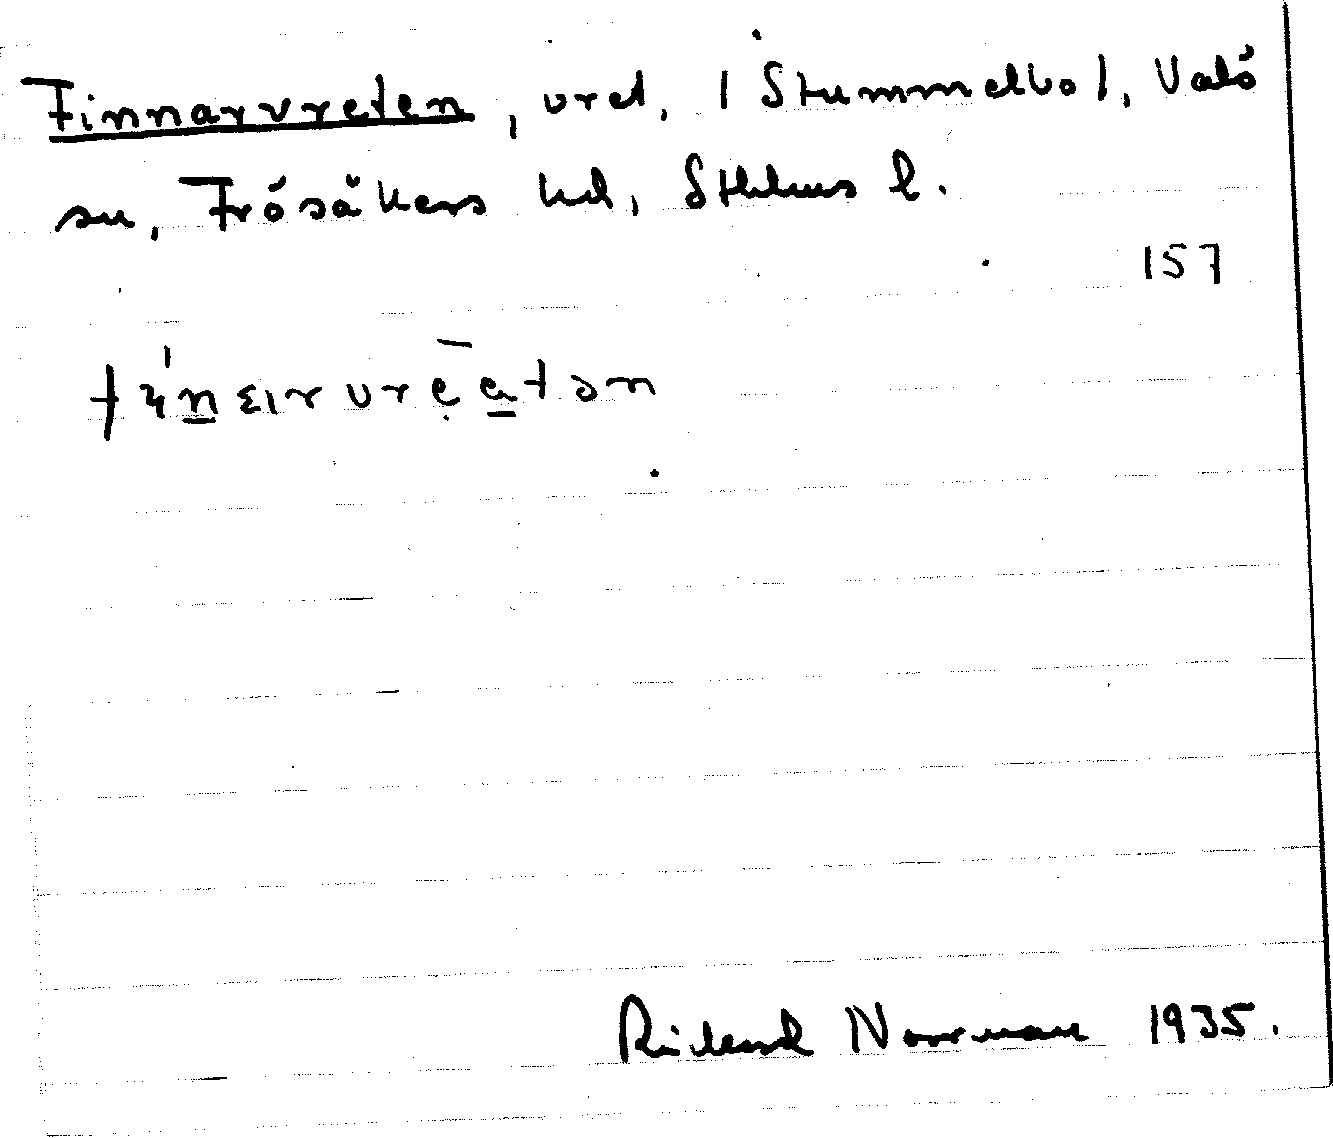 Finnarvreten, vret, i Stummelbol, Valö
sn, Frösåkers hd, Sthlms l.
157
Rickard Norrman 1935.